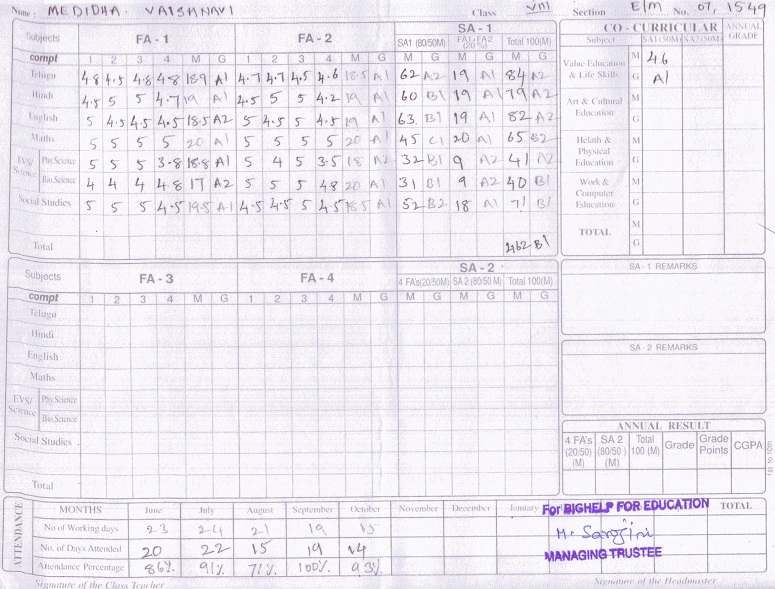 Name : MEDIDHA VAISHNAVI Class VIII Section E/M No. 07, 1549
Subjects FA - 1 FA - 2 SA - 1 CO - CURRICULAR ANNUAL GRADE
SA1 (80/50M) FA1-FA2 (20 %) Total 100(M) Subject SA1(50M) SA2(50M)
compt 1 2 3 4 M G 1 2 3 4 M G M G M G M G
Telugu 4.8 4.5 4.8 4.8 18.9 A1 4.7 4.7 4.5 4.6 18.5 A1 62 A2 19 A1 84 A2
Hindi 4.5 5 5 4.7 19 A1 4.5 5 5 4.2 19 A1 60 B1 19 A1 79 A2
English 5 4.5 4.5 4.5 18.5 A2 5 4.5 5 4.5 19 A1 63 B1 19 A1 82 A2
Maths 5 5 5 5 20 A1 5 5 5 5 20 A1 45 C1 20 A1 65 B2
EVS/ Science Phy.Science 5 5 5 3.8 18.8 A1 5 4 5 3.5 18 A2 32 B1 9 A2 41 A2
Bio.Science 4 4 4 4.8 17 A2 5 5 5 48 20 A1 31 B1 9 A2 40 B1
Social Studies 5 5 5 4.5 19.5 A1 4.5 4.5 5 4.5 18.5 A1 52 B2 18 A1 71 B1
Total 462 B1
Value Education & Life Skills M 46
G A1
Art & Cultural Education M
G
Helath & Physical Education M
G
Work & Computer Education M
G
TOTAL M
G
Subjects FA - 3 FA - 4 SA - 2
4 FA's(20/50M) SA 2 (80/50 M) Total 100(M)
compt 1 2 3 4 M G 1 2 3 4 M G M G M G M G
Telugu
Hindi
English
Maths
EVS/ Science Phy.Science
Bio.Science
Social Studies
Total
SA - 1 REMARKS
SA - 2 REMARKS
ANNUAL RESULT
4 FA's (20/50) (M) SA 2 (80/50 ) (M) Total 100 (M) Grade Grade Points CGPA
ATTENDANCE
MONTHS June July August September October November December January TOTAL
No of Working days 23 24 21 19 15
No. of Days Attended 20 22 15 19 14
Attendance Percentage 86% 91% 71% 100% 93%
For BIGHELP FOR EDUCATION
M. Sarojini
MANAGING TRUSTEE
Signature of the Class Teacher Signature of the Headmaster